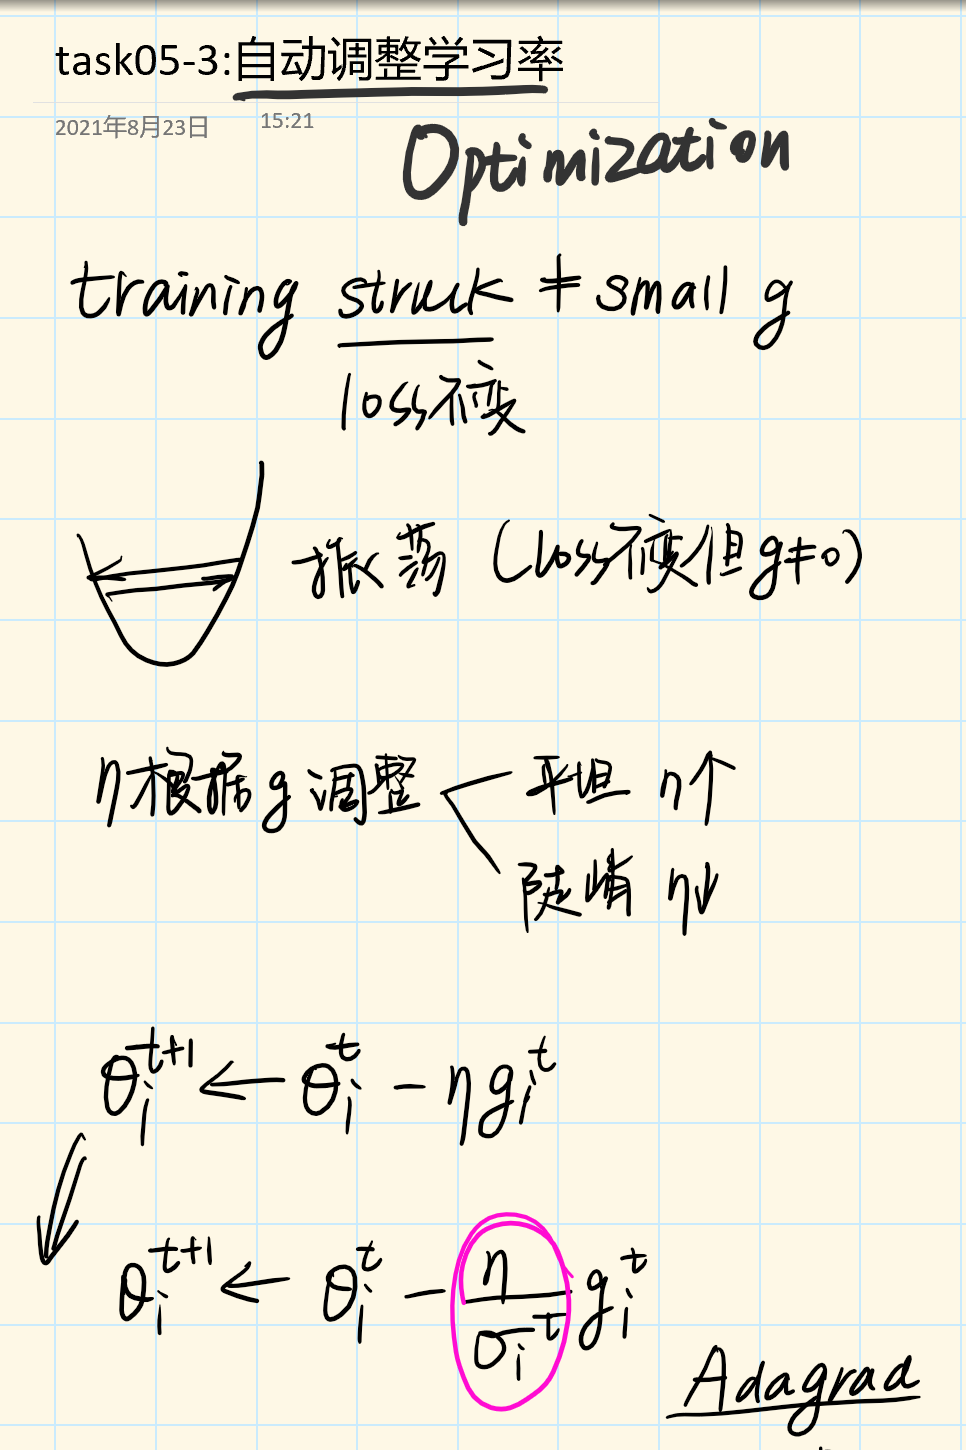 task05-3:自动调整学习率
2021年8月23日 15:21
Optimization
training struck ≠ small g
loss不变
振荡 (loss不变但g≠0)
η根据g调整 平坦 η↑
陡峭 η↓
θᵢᵗ⁺¹ ← θᵢᵗ - ηgᵢᵗ
θᵢᵗ⁺¹ ← θᵢᵗ - η/σᵢᵗ gᵢᵗ
Adagrad